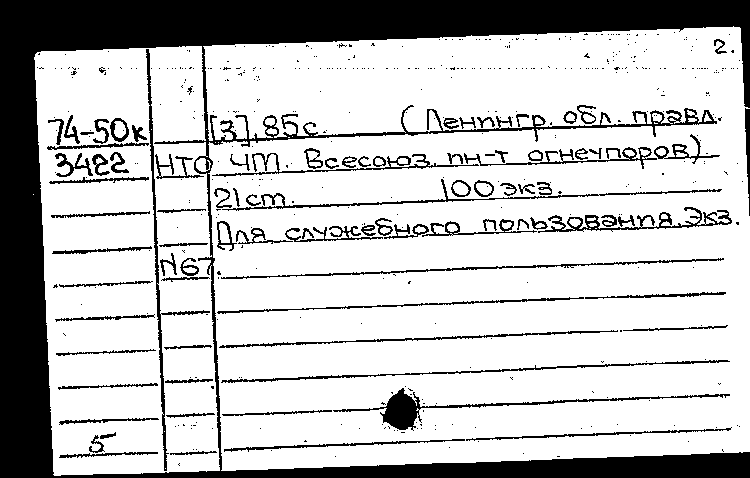 2.
74-50к [3], 85с. (Ленингр. обл. правл.
3422 НТО ЧМ. Всесоюз. ин-т огнеупоров)
21 cm. 100 экз.
Для служебного пользования. Экз.
N67.
5